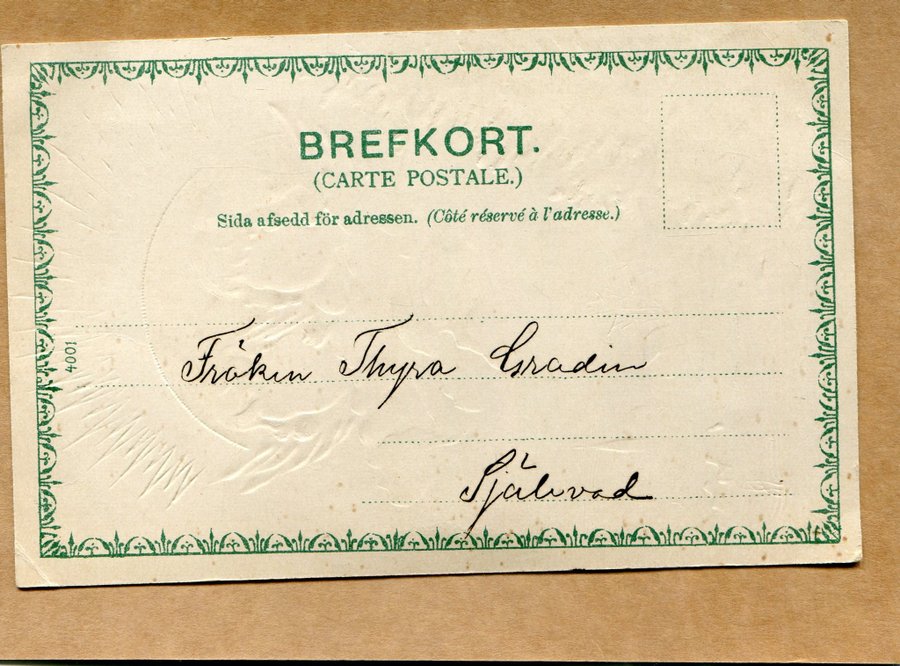 BREFKORT.
(CARTE POSTALE.)
Sida afsedd för adressen. (Côté réservé à l'adresse.)
4001
Fröken Thyra Gradin
Själevad